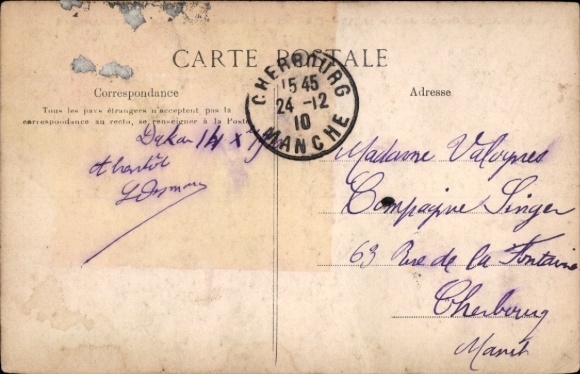 CARTE POSTALE
Correspondance
Tous les pays étrangers n'acceptent pas la
correspondance au recto, se renseigner à la Poste
Dakar 14 X
A bientôt
CHERBOURG
15 45
24 - 12
10
MANCHE
Adresse
Madame Valognes
Compagnie Singer
63 Rue de la Fontaine
Cherbourg